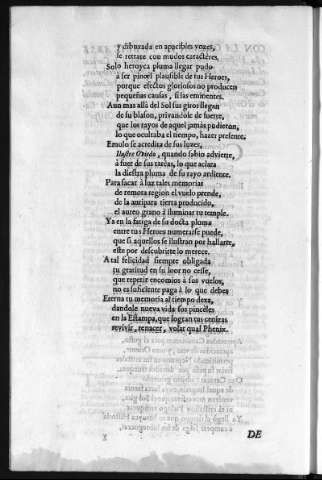 y dibuxada en apacibles vozes,
se retrate con mudos caractéres.
Solo heroyca pluma llegar pudo
à ser pincel plausible de tus Heroes,
porque efectos gloriosos no producen
pequeñas causas, si las eminentes.
Aun mas allà del Sol sus giros llegan
de su blason, privandole de suerte,
que los rayos de aquel jamàs pudieran,
lo que ocultaba el tiempo, hazer presente.
Emulo se acredita de sus luzes,
Ilustre Oviedo, quando sabio advierte,
à fuer de sus tareas, lo que aclara
la diestra pluma de su rayo ardiente.
Para sacar à luz tales memorias
de remota region el vuelo prende,
de la auripara tierra producido,
el aureo grano à iluminar tu temple.
Ya en la fatiga de su docta pluma
entre tus Heroes numerarse puede,
que si aquellos se ilustran por hallarte,
este por descubrirte lo merece.
A tal felicidad siempre obligada
tu gratitud en su loor no cesse,
que repetir encomios à sus vuelos,
no es suficiente paga à lo que debes
Eterna tu memoria al tiempo dexa,
dandole nueva vida sus pinceles
en la Estampa, que logran tus cenizas
revivir, renacer, volar qual Phenix.
DE